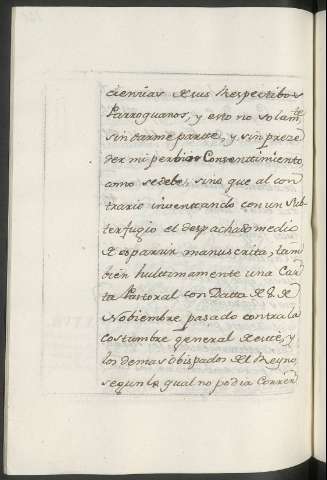 ciensias de sus Respectibos
Parroquianos, y esto no solamte
sin darme parte, y sin preze
der mi perbio Consenttimiento,
como se debe, sino que al con
trario inventtando con un sub
terfugio el despachado medio
de esparsir manuscrita, tam
bien hulttimamente una Car
ta Pastoral con Datta de 8 de
Nobiembre pasado contra la
costumbre general de este, y
los demas obispados del Reyno,
segun la qual no podia Correr